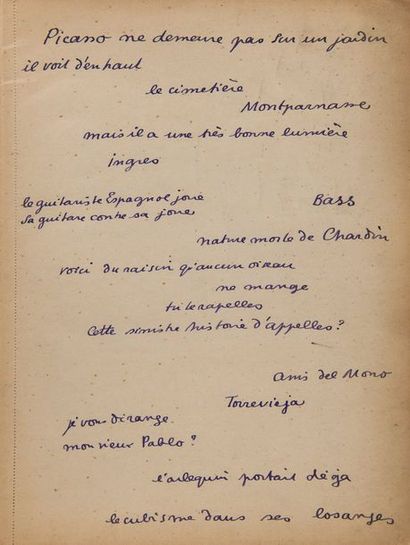 Picasso ne demeure pas sur un jardin
il voit d'en haut
le cimetière
Montparnasse
mais il a une très bonne lumière
ingres
le guitariste Espagnol joue
sa guitare contre sa joue
Bass
nature morte de Chardin
voici du raisin qu'aucun oiseau
ne mange
tu te rapelles
Cette sinistre histoire d'appelles?
anis del Mono
Torrevieja
je vous dérange
monsieur Pablo?
l'arlequin portait déja
le cubisme dans ses losanges